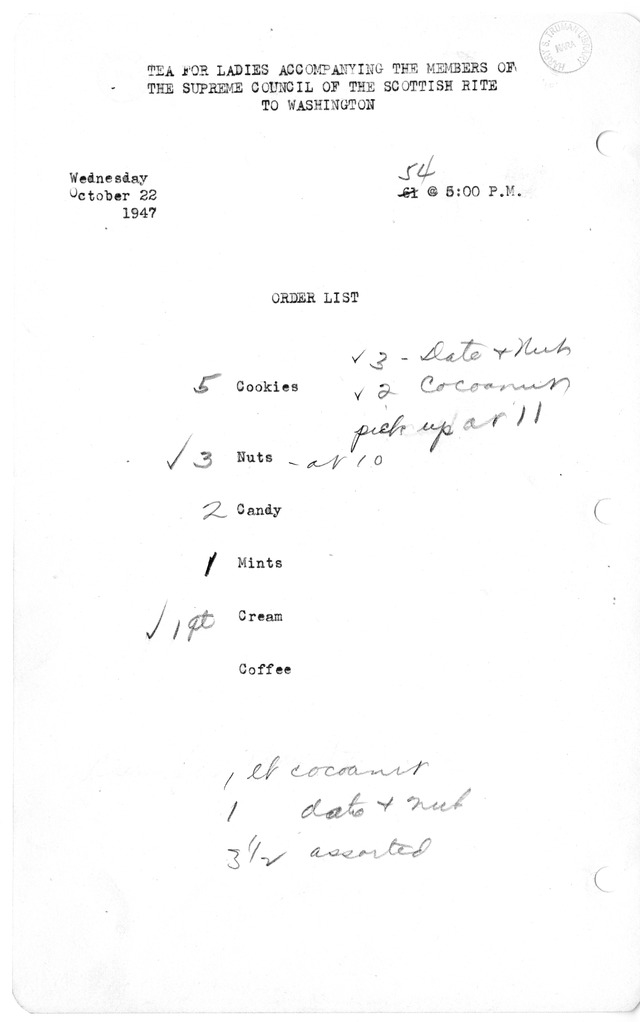 HARRY S. TRUMAN LIBRARY
NARA
TEA FOR LADIES ACCOMPANYING THE MEMBERS OF
THE SUPREME COUNCIL OF THE SCOTTISH RITE
TO WASHINGTON
54
Wednesday
October 22
1947
61 @ 5:00 P.M.
ORDER LIST
✓ 3 - Date + Nut
5 Cookies ✓ 2 Cocoanut
pick up at 11
✓ 3 Nuts - at 10
2 Candy
1 Mints
✓ 1 qt Cream
Coffee
1 lb cocoanut
1 date + nut
3 1/2 assorted